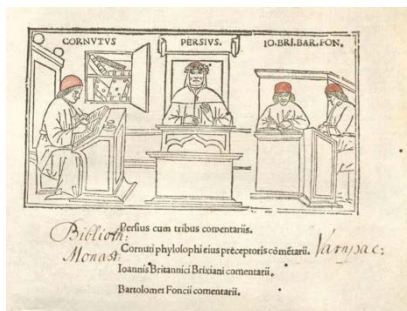 CORNVTVS PERSIVS. IO.BRI.BAR.FON.
Persius cum tribus comentariis.
Biblioth:
Cornuti phylosophi eius preceptoris cōmētarii.
Monast:
Ioannis Britannici Brixiani comentarii.
Bartolomei Foncii comentarii.